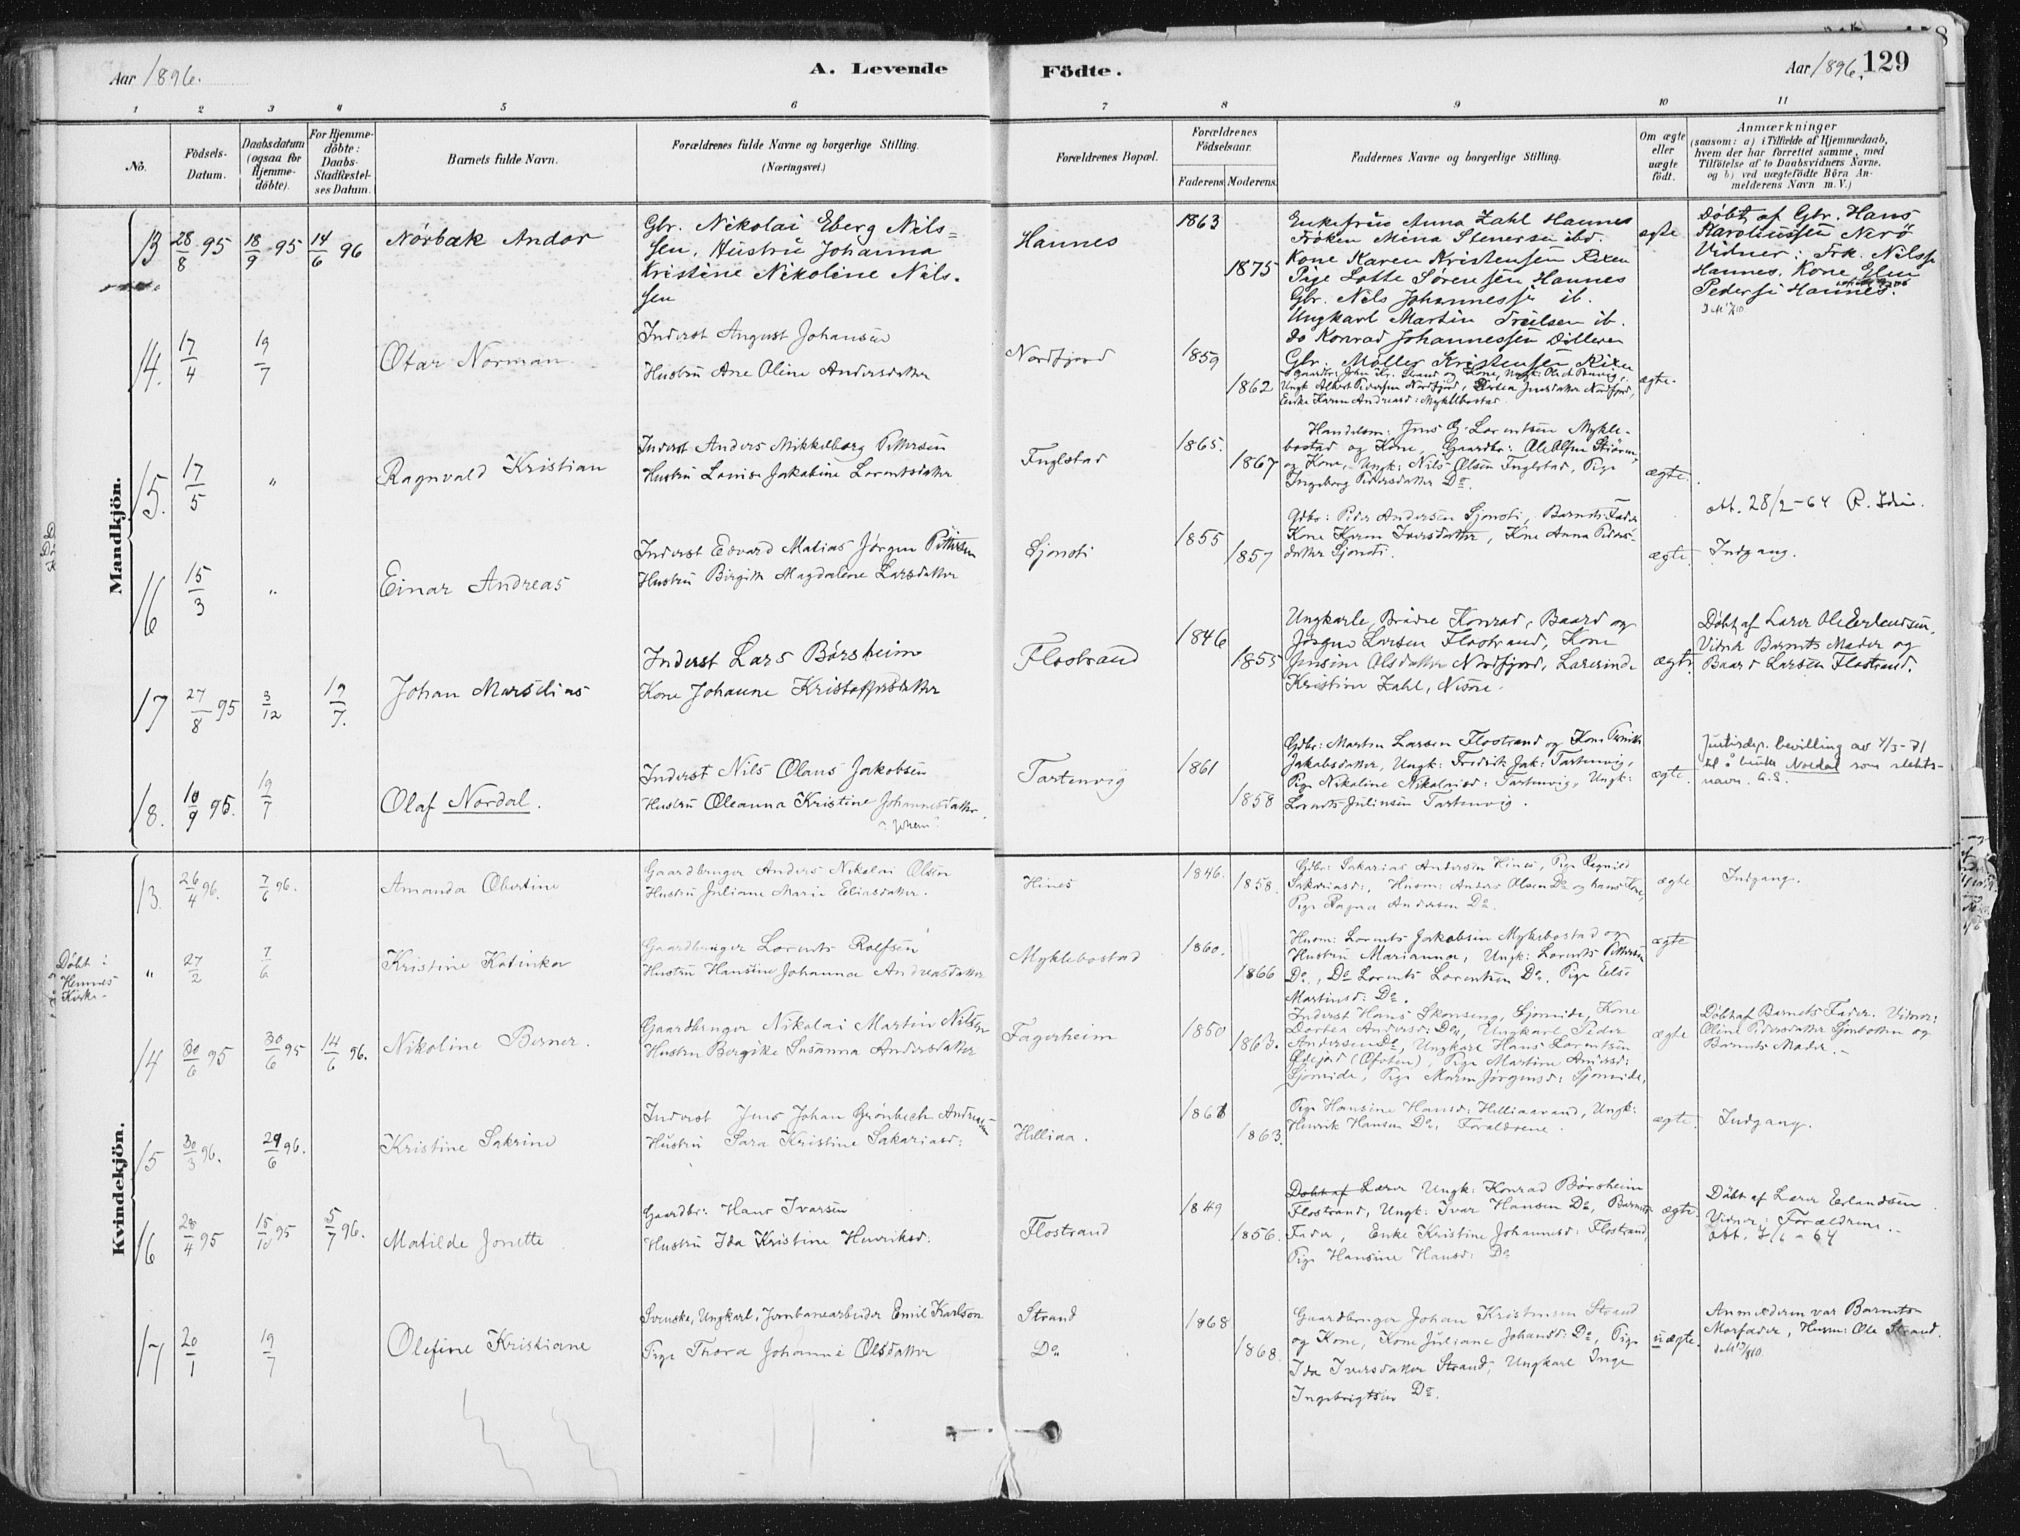 Aar 1896.
A. Levende
Födte.
Aar 1896.
129
1 2 3 4 5 6 7 8 9 10 11
No.
Födsels-
Datum.
Daabsdatum
(ogsaa for
Hjemme-
döbte).
For Hjemme-
döbte:
Daabs-
Stadfæstel-
ses Datum.
Barnets fulde Navn.
Forældrenes fulde Navne og borgerlige Stilling.
(Næringsvei.)
Forældrenes Bopæl.
Forældrenes
Födselsaar.
Faderens
Moderens.
Faddernes Navne og borgerlige Stilling.
Om ægte
eller
uægte
födt.
Anmærkninger
(saasom: a) i Tilfælde af Hjemmedaab,
hvem der har forrettet samme, med
Tilföielse af to Daabsvidners Navne,
og b) ved uægtefödte Börn An-
melderens Navn m. V.)
Mandkjön.
13
28/8 95
18/9 95
14/6 96
Nørbæk Andor
Gbr. Nikolai Eberg Nils=
sen, Hustru Johanna
Kristine Nikoline Nils-
sen
Hannes
1863
1875
Enkefru Anna Zahl Hannes
Frøken Mina Stenersen ibd.
Kone Karen Kristensen Rixen
Pige Lotte Sørensen Hannes
Gbr. Nils Johannessen ib.
Ungkarl Martin Truelsen ib.
do Konrad Johannessen Dilleren
Gbr. Møller Kristensen Rixen
ægte
Døbt af Gbr. Hans
Karolinssen Nerö
Vidner: Frk. Nilssen
Hannes, Kone Elen
Pedersen Hannes.
14.
17/4
19/7
Otar Norman
Inderst August Johansen
Hustru Ane Oline Andersdatter
Nordfjord
1859
1862
Gaardbr: Johan Kr. Strand og Kone,
Ungk. Albert Pedersen Nordfjord, Jensdatter Nordfjord,
Enke Karen Andreasd: Myklebostad.
ægte.
15.
17/5
"
Ragnvald Kristian
Inderst Anders Mikkelborg Pettersen
Hustru Lovise Jakobine Lorentsdatter
Fuglstad
1865.
1867
Handelsm: Jens G. Lorentsen Mykle-
bostad og Kone, Gaardbr: Ole Olsen
og Kone, Ungk: Nils Olsen Fuglstad, Pige
Ingeborg Pedersdatter Do.
ægte.
att. 28/2-64
16
15/3
"
Einar Andreas
Inderst Edvard Matias Jørgen Pettersen
Hustru Birgitte Magdalene Larsdatter
Sjonsti
1855
1857
Gdbr: Peder Andersen Sjonsti, Barnets Fader
Kone Karen Iversdatter, Kone Anna Peders-
datter Sjonsti.
ægte
Indgang.
17
27/8 95
3/12
19/7.
Johan Marselius
Inderst Lars Børsheim
Kone Johanne Kristoffersdatter
Flostrand
1846
1855
Ungkarle, Brødre Konrad, Baard og
Jørgen Larsen Flostrand, Kone
Jensine Olsdatter Nordfjord, Lærerinde
Kristine Zahl, Nesne.
ægte
Døbt af Lærer Ole Erlendsen.
Vidner Barnets Moder og
Baard Larsen Flostrand.
18.
10/9 95.
19/7
Olaf Nordal.
Inderst Nils Olaus Jakobsen
Hustru Oleanna Kristine Johannesdatter.
Tartenvig
1861
1858
Gdbr: Martin Larsen Flostrand og Kone
Jakobsdatter, Ungk: Fredrik Jak: Tartenvig,
Pige Nikoline Nikolaisd: Tartenvig, Ungk:
Lorents Julinsen Tartenvig.
ægte
Justisdep. bevilling av 4/3-71
til å bruke Nordal som slekts-
navn. G.S.
Kvindekjön.
13.
26/4 96.
7/6 96.
Amanda Obertine
Gaardbruger Anders Nikolai Olsen
Hustru Juliane Marie Eliasdatter.
Hines
1846.
1858.
Gdbr: Sakarias Andersen Hines, Pige Regnild
Sakariasd:, Husm: Anders Olsen Do og hans Kone,
Pige Ragna Andersen Do.
ægte
Indgang.
Døbt i
Hemnes
Kirke.
"
27/2
7/6
Kristine Katinka
Gaardbruger Lorents Rolfsen
Hustru Hansine Johanna Andreasdatter
Myklebostad
1860.
1866
Husm: Lorents Jakobsen Myklebostad og
Hustru Marianna, Ungk: Lorents Pettersen
Do., Do Lorents Lorentsen Do. Pige Else
Martinsd: Do.
ægte
14
30/6 95
30/6 95
14/6 96.
Nikoline Berner.
Gaardbruger Nikolai Martin Nilsen
Hustru Bergitte Susanna Andersdatter
Fagerheim
1850
1863.
Inderst Hans Skonseng, Sjoneide, Kone
Dortea Andersd: Do, Ungkarl Peder
Andersen Do, Ungkarl Hans Lorentsen
(Ofoten), Pige Martine Andersd:
Sjoneide, Pige Maren Jørgensd: Sjoneide.
ægte
Døbt af Barnets Fader. Vidner:
Oline Pedersdatter Sjonbotten og
Barnets Moder.
15
30/3 96.
29/6 96.
Kristine Sakrine
Inderst Jens Johan Grønbech Andreassen
Hustru Sara Kristine Sakariasd:
Helliaa.
1861
1863.
Pige Hansine Hansd: Helliaavand, Ungk:
Henrik Hansen Do. Forældrene.
ægte.
Indgang.
16
28/4 95
15/10 95
5/7 96.
Matilde Jonette
Gaardbr: Hans Ivarsen
Hustru Ida Kristine Henriksd:
Flostrand
1849
1856.
Døbt af Lærer Ungk: Konrad Børsheim
Flostrand, Ungk: Ivar Hansen Do, Barnets
Fader, Enke Kristine Johannesd: Flostrand,
Pige Hansine Hansd: Do
ægte.
Døbt af Lærer Erlandsen.
Vidner: Forældrene.
17
20/1
19/7
Olefine Kristiane
Svenske, Ungkarl, Jernbanearbeider Emil Karlson
Pige Thora Johanne Olsdatter
Strand
Do
1868
1868.
Gaardbruger Johan Kristensen Strand
og Kone, Kone Juliane Johansd: Do, Pige
Ida Iversdatter Strand, Ungkarl Inge
Ingebrigtsen Do.
uægte.
Anmelderen var Barnets
Morfader, Husm: Ole Strand.